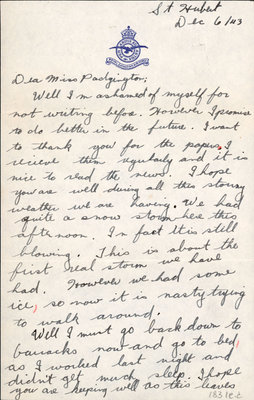 St Hubert
Dec 6/43
Dea Miss Padgington,
Well I'm ashamed of myself for
not writing before. However I promise
to do better in the future. I want
to thank you for the papers. I
recieve them regularly and it is
nice to read the news. I hope
you are well during all this stormy
weather we are having. We had
quite a snow storm here this
afternoon. In fact it is still
blowing. This is about the
first real storm we have
had. However we had some
ice, so now it is nasty trying
to walk around.
Well I must go back down to
barracks now and go to bed,
as I worked last night and
didn't get much sleep. I hope
you are keeping well as this leaves